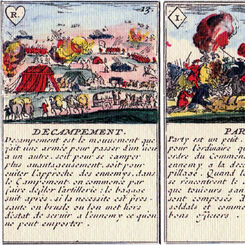 R.
13.
DECAMPEMENT.
Decampement est le mouvement que
fait une armée pour passer d'un lieu
a un autre, soit pour se camper
plus avantageusement, soit pour
éviter l'approche des ennemys, dans
le Campement on commence par
faire defiler l'artillerie; le bagage
suit aprés, et la necessité est pres-
sante, on brusle ou bon met hors
d'estat de servir a l'ennemy ce qu'on
ne peut emporter.
I.
PAR
Party est un petit
pour l'ordinaire qu
ordre du Commen
ennemy a la de
pillage. Quand le
se rencontrent le
que tousjours san
sont composez
soldats et comma
bons officiers.